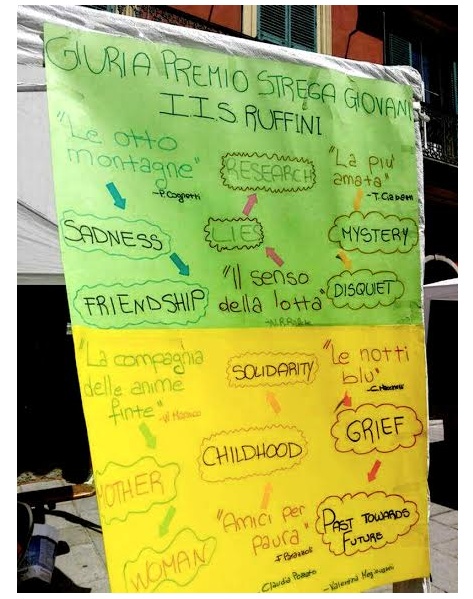 GIURIA PREMIO STREGA GIOVANI
I.I.S RUFFINI
"Le otto
montagne"
-P. Cognetti
SADNESS
FRIENDSHIP
RESEARCH
LIES
"Il senso
della lotta"
"La più
amata"
MYSTERY
DISQUIET
"La compagnia
delle anime
finte"
MOTHER
WOMAN
SOLIDARITY
CHILDHOOD
"Amici per
paura"
"Le notti
blu"
GRIEF
PAST TOWARDS
FUTURE
Claudia
-Valentina